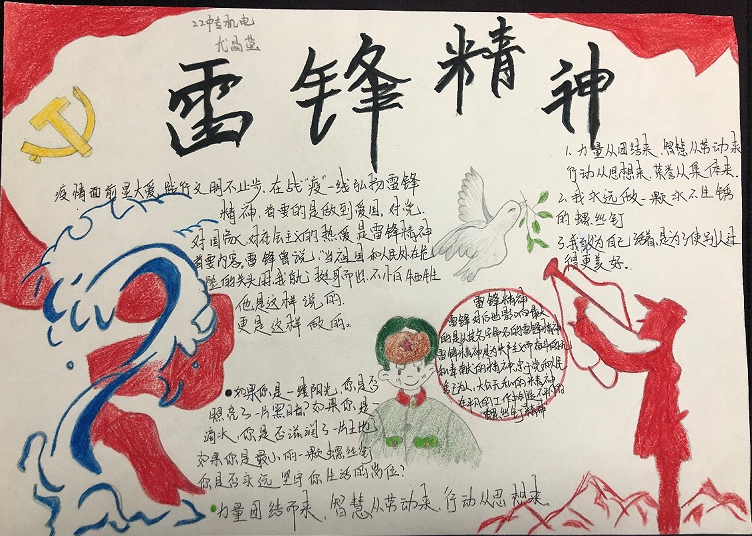 22中专机电
尤高蓝
雷锋精神
疫情面前显大爱,践行文明不止步,在战"疫"一线弘扬雷锋
精神,首要的是做到爱国,对党,
对国家,对社会主义的热爱是雷锋精神
首要内容,雷锋曾说,"当祖国和人民处在危
险的关头时,我就挺身而出,不怕牺牲
他是这样说的,
更是这样做的。
1、力量从团结来,智慧从劳动来
行动从思想来,荣誉从集体来.
2、我永远做一颗永不生锈
的螺丝钉
3、我敢为自己活着,是为了使别人过
得更美好。
雷锋精神
雷锋对后世影响最大
的是以其名字命名的雷锋精神
雷锋精神是为共产主义而奋斗的
和奉献的精神;忠于党和人民
舍己为人,大公无私的精神
在平凡的工作中
螺丝钉精神
●如果你是一缕阳光,你是否
照亮了一片黑暗?如果你是
滴水,你是否滋润了一片土地
如果你是最小的一颗螺丝钉
你是否永远坚守你生活的岗位?
●力量团结而来,智慧从劳动来,行动从思想来.